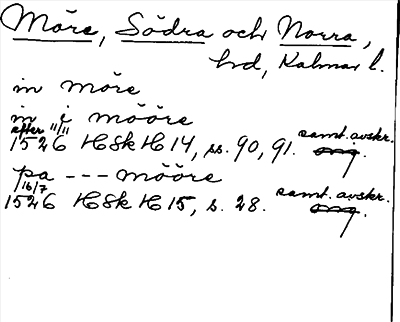 Möre, Södra och Norra,
hd, Kalmar l.
in möre
in i mööre
efter 11/11 samt. avskr.
1526 HSk H 14, ss. 90, 91. orig.
pa --- mööre
16/7 samt. avskr.
1526 HSk H 15, s. 28. orig.